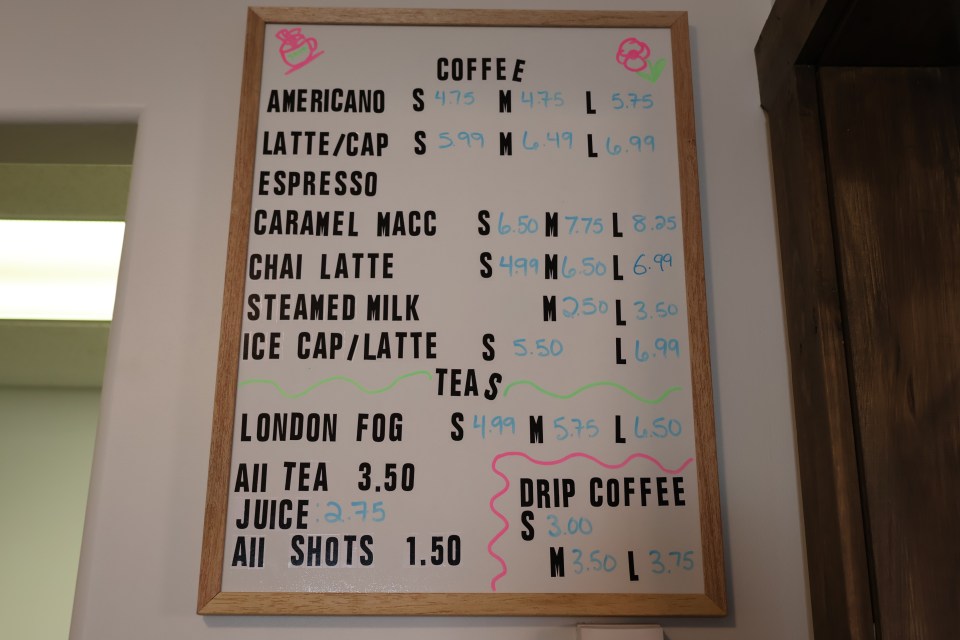 COFFEE
AMERICANO S 4.75 M 4.75 L 5.75
LATTE/CAP S 5.99 M 6.49 L 6.99
ESPRESSO
CARAMEL MACC S 6.50 M 7.75 L 8.25
CHAI LATTE S 4.99 M 6.50 L 6.99
STEAMED MILK M 2.50 L 3.50
ICE CAP/LATTE S 5.50 L 6.99
TEAS
LONDON FOG S 4.99 M 5.75 L 6.50
All TEA 3.50
JUICE 2.75
All SHOTS 1.50
DRIP COFFEE
S 3.00
M 3.50 L 3.75